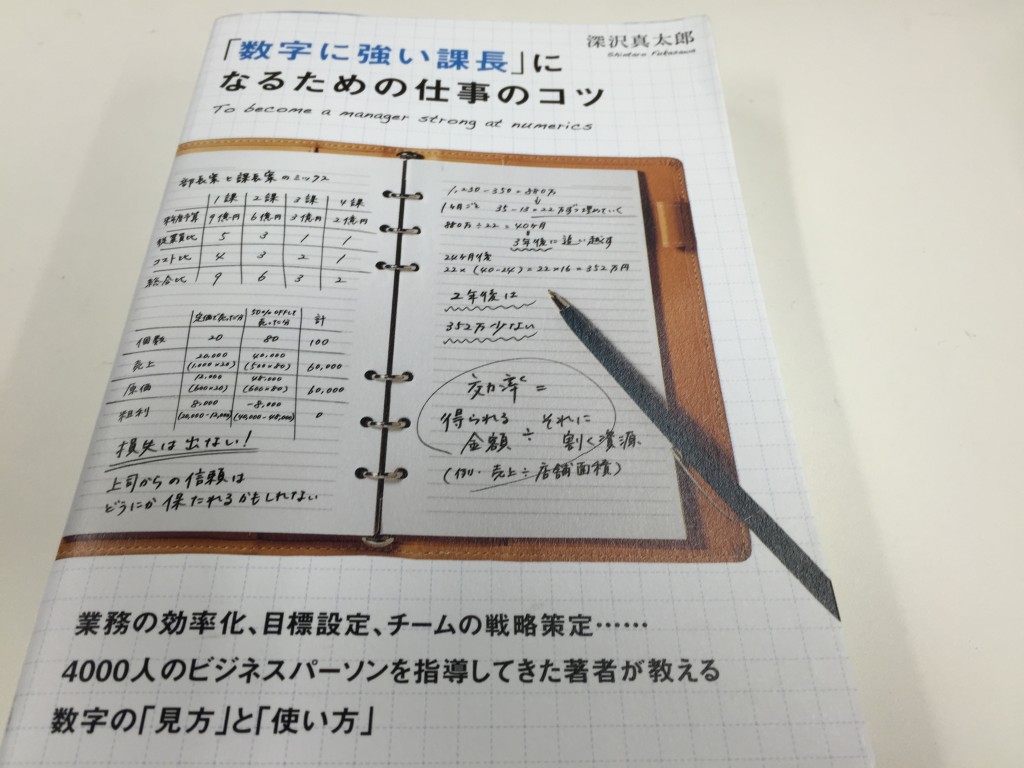 深沢真太郎
Shintaro Fukasawa
「数字に強い課長」に
なるための仕事のコツ
To become a manager strong at numerics
部長案と課長案のミックス
1課 2課 3課 4課
9億円 6億円 3億円 2億円
従業員比 5 3 1 1
コスト比 4 3 2 1
総合比 9 6 3 2
定価で売った分 50%OFFで売った分 計
個数 20 80 100
売上 20,000 (1,000×20) 40,000 (500×80) 60,000
原価 12,000 (600×20) 48,000 (600×80) 60,000
粗利 8,000 (20,000-12,000) -8,000 (40,000-48,000) 0
損失は出ない!
上司からの信頼は
どうにか保たれるかもしれない
1,230-350=880万
1ヶ月ごと 35-13=22万ずつ埋めていく
880万÷22=40ヶ月
3年後に追い越す
24ヶ月後
22×(40-24)=22×16=352万円
2年後は
352万少ない
効率=
得られる金額÷それに割く資源
(例・売上÷店舗面積)
業務の効率化、目標設定、チームの戦略策定……
4000人のビジネスパーソンを指導してきた著者が教える
数字の「見方」と「使い方」